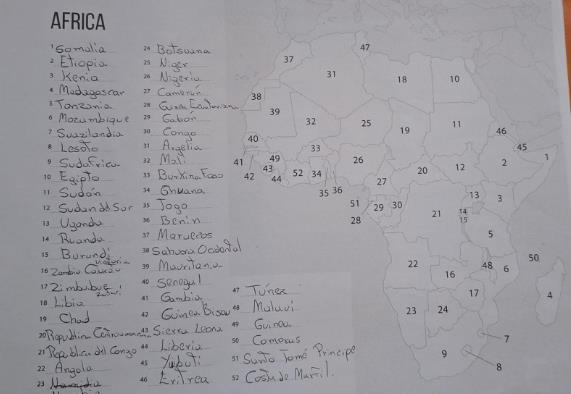 AFRICA
1 Somalia
2 Etiopia
3 Kenia
4 Madagascar
5 Tanzania
6 Mozumbique
7 Suazilandia
8 Lesoto
9 Sudafrica
10 Egipto
11 Sudán
12 Sudan del Sur
13 Uganda
14 Ruanda
15 Burundi
16 Zambia
17 Zimbabue
18 Libia
19 Chad
20 Republica
21 Republica del Congo
22 Angola
23
24 Botsuana
25 Niger
26 Nigeria
27 Camerún
28 Guinea Ecuatoriana
29 Gabon
30 Congo
31 Argelia
32 Mali
33 Burkina Faso
34 Ghuana
35 Togo
36 Benin
37 Marruecos
38 Sahara Ocidental
39 Mauritana
40 Senegal
41 Gambia
42 Guinea Bisau
43 Sierra Leona
44 Liberia
45 Yubuti
46 Eritrea
47 Tunez
48 Malaui
49 Guinea
50 Comoras
51 Santo Tomé Principe
52 Costa de Marfil.
47
37
31
18
10
38
39
32
25
19
11
46
45
1
40
33
41
49
43
42
44
52
34
26
20
12
2
35
36
27
13
3
51
29
30
28
21
14
15
5
22
48
6
50
16
17
4
23
24
7
9
8